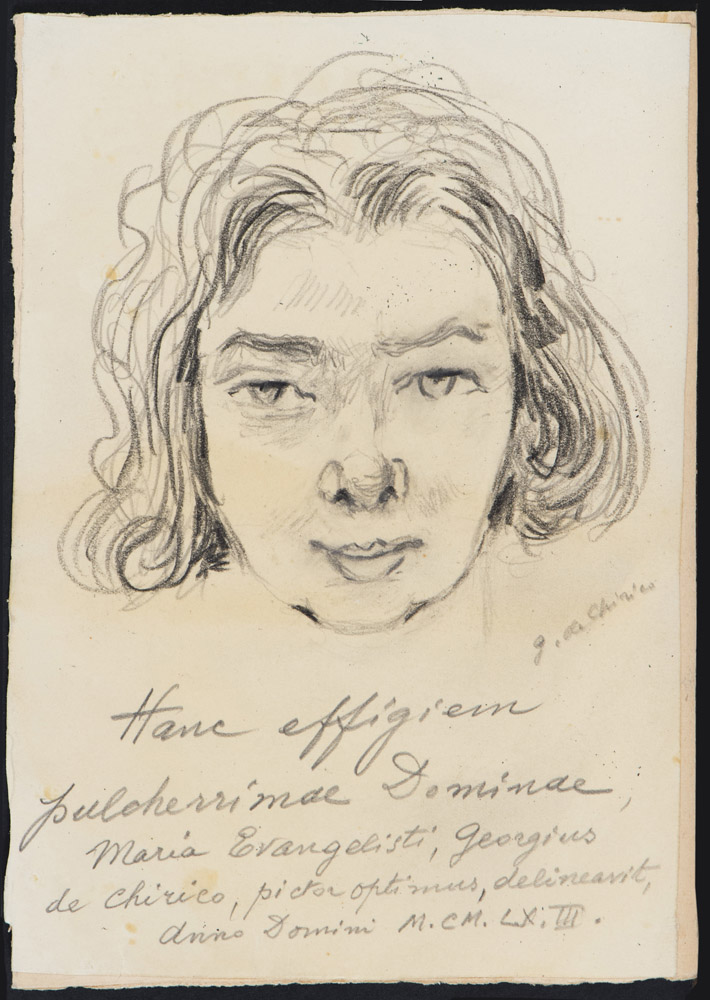 g. de Chirico
Hanc effigiem
pulcherrimae Dominae,
Maria Evangelisti, Georgius
de Chirico, pictor optimus, delineavit,
Anno Domini M.CM.LX.III.